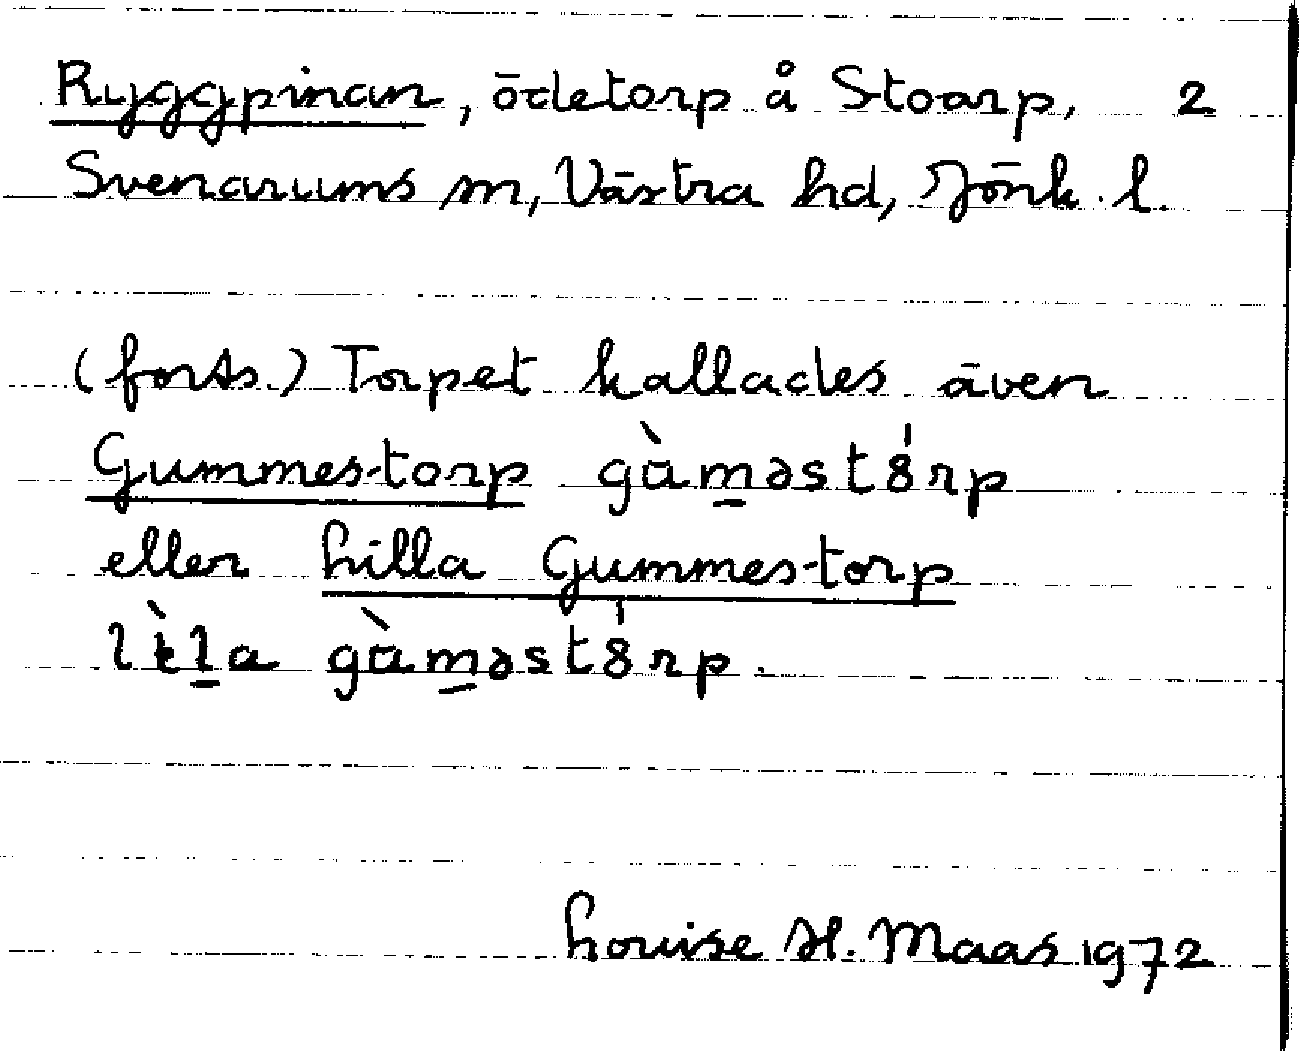 Ryggpinan, ödetorp å Stoarp, 2
Svenarums sn, Västra hd, Jönk. l.
(forts.) Torpet kallades även
Gummestorp gàm̲əstȣ́rp
eller Lilla Gummestorp
lìl̲a gàm̲əstȣ́rp.
Louise H. Maas 1972